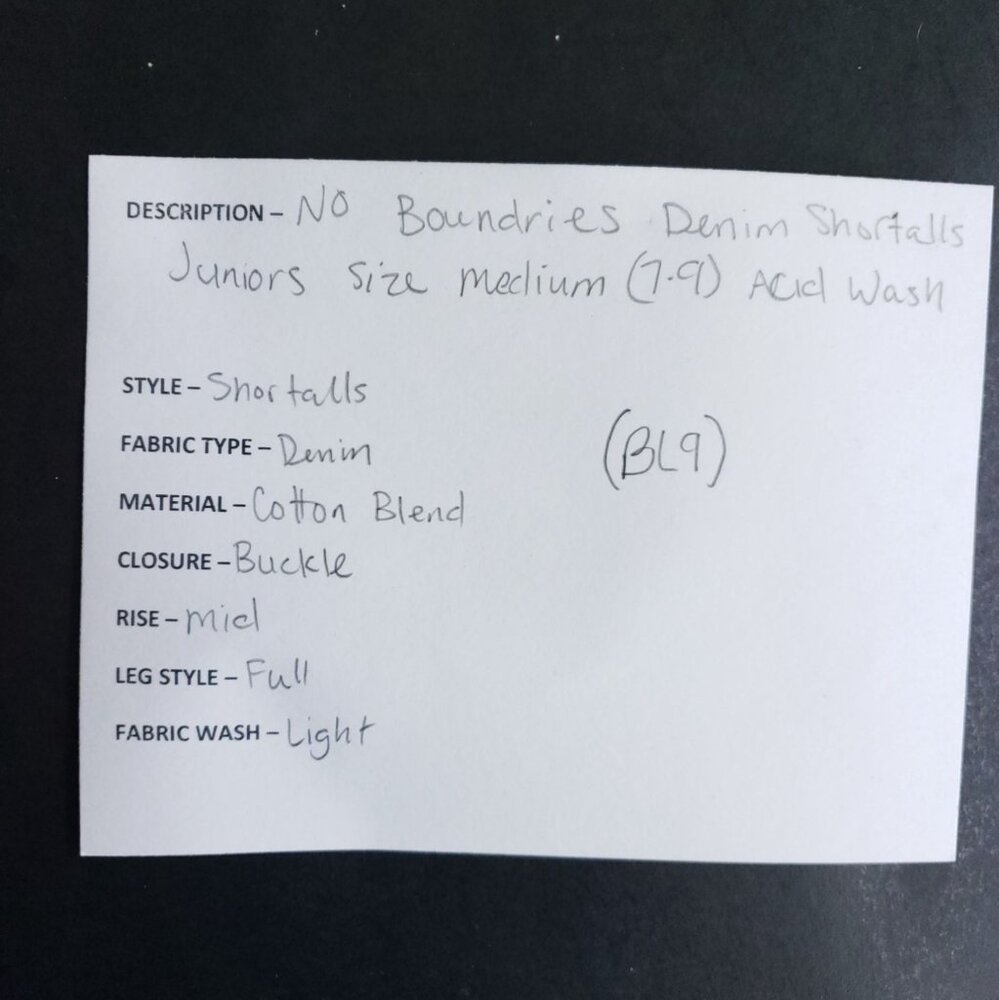 DESCRIPTION – NO Boundries Denim Shortalls
Juniors Size Medium (7-9) Acid Wash
STYLE – Shortalls
FABRIC TYPE – Denim
(BL9)
MATERIAL – Cotton Blend
CLOSURE – Buckle
RISE – Mid
LEG STYLE – Full
FABRIC WASH – Light